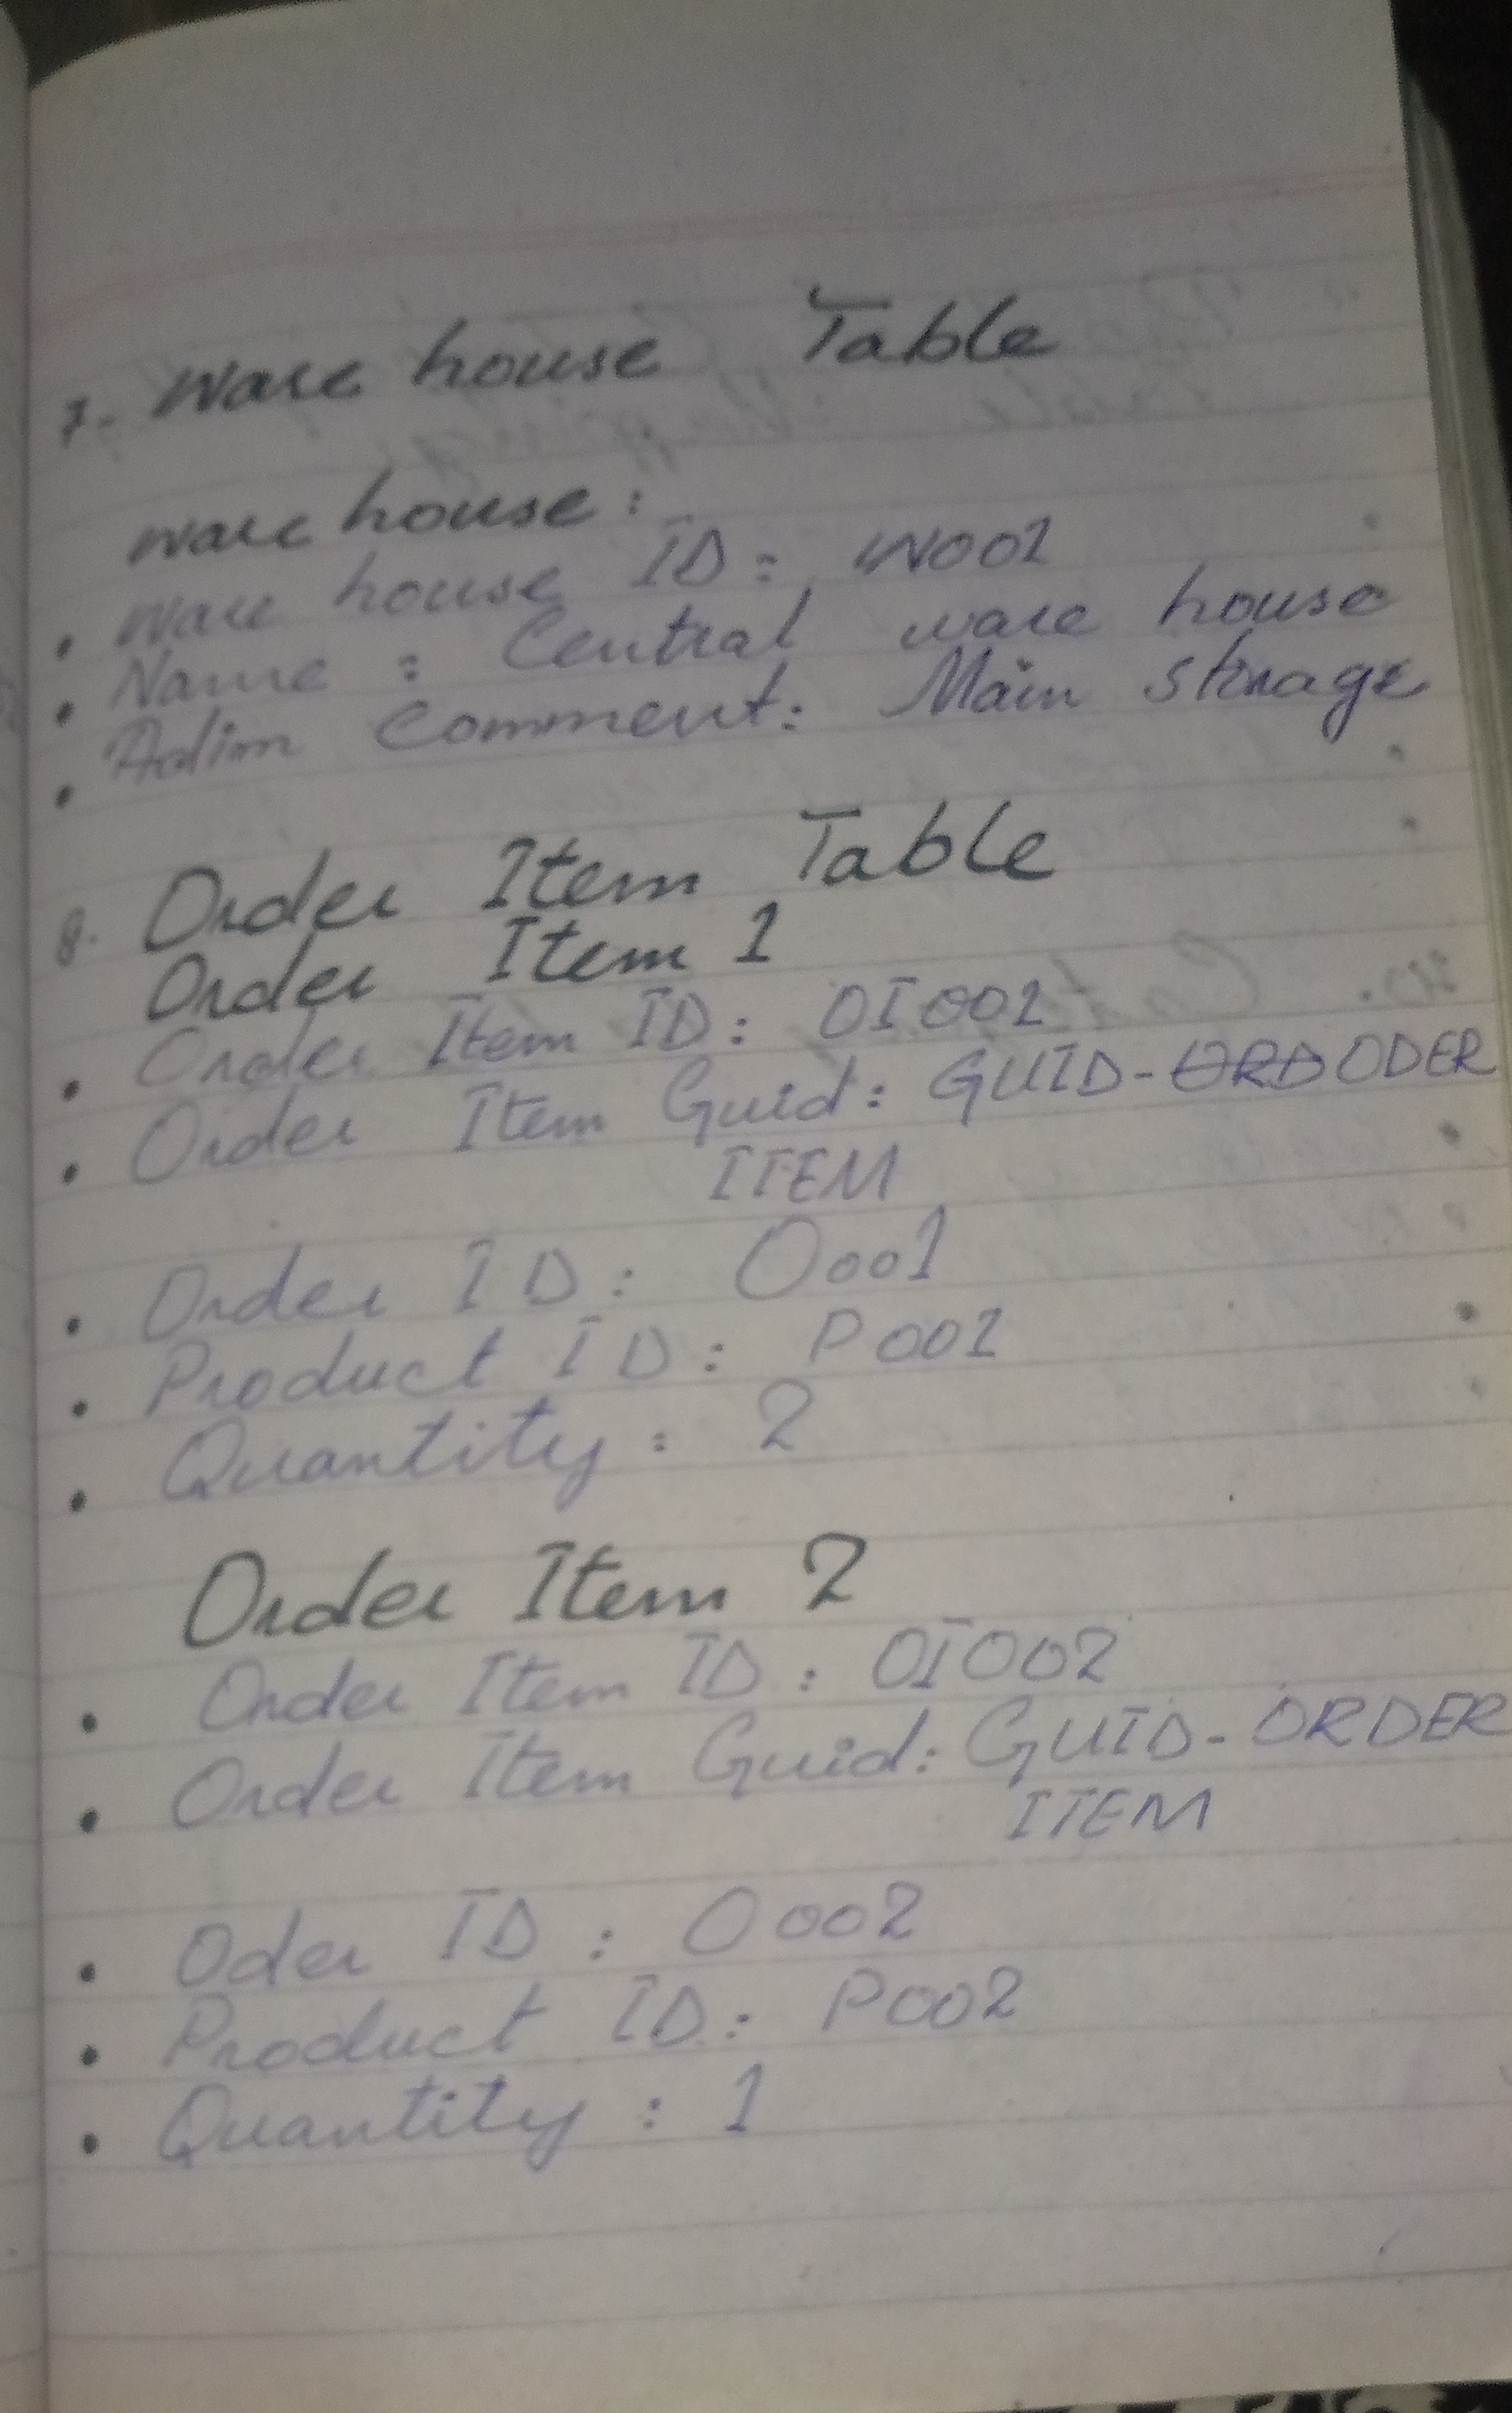 7. Ware house Table
Ware house :
• Ware house ID : W001
• Name : Central ware house
• Adim Comment : Main Storage
8. Order Item Table
Order Item 1
• Order Item ID : OI001
• Order Item Guid : GUID-ORD ODER
ITEM
• Order ID : O001
• Product ID : P001
• Quantity : 2
Order Item 2
• Order Item ID : OI002
• Order Item Guid : GUID-ORDER
ITEM
• Oder ID : O002
• Product ID : P002
• Quantity : 1